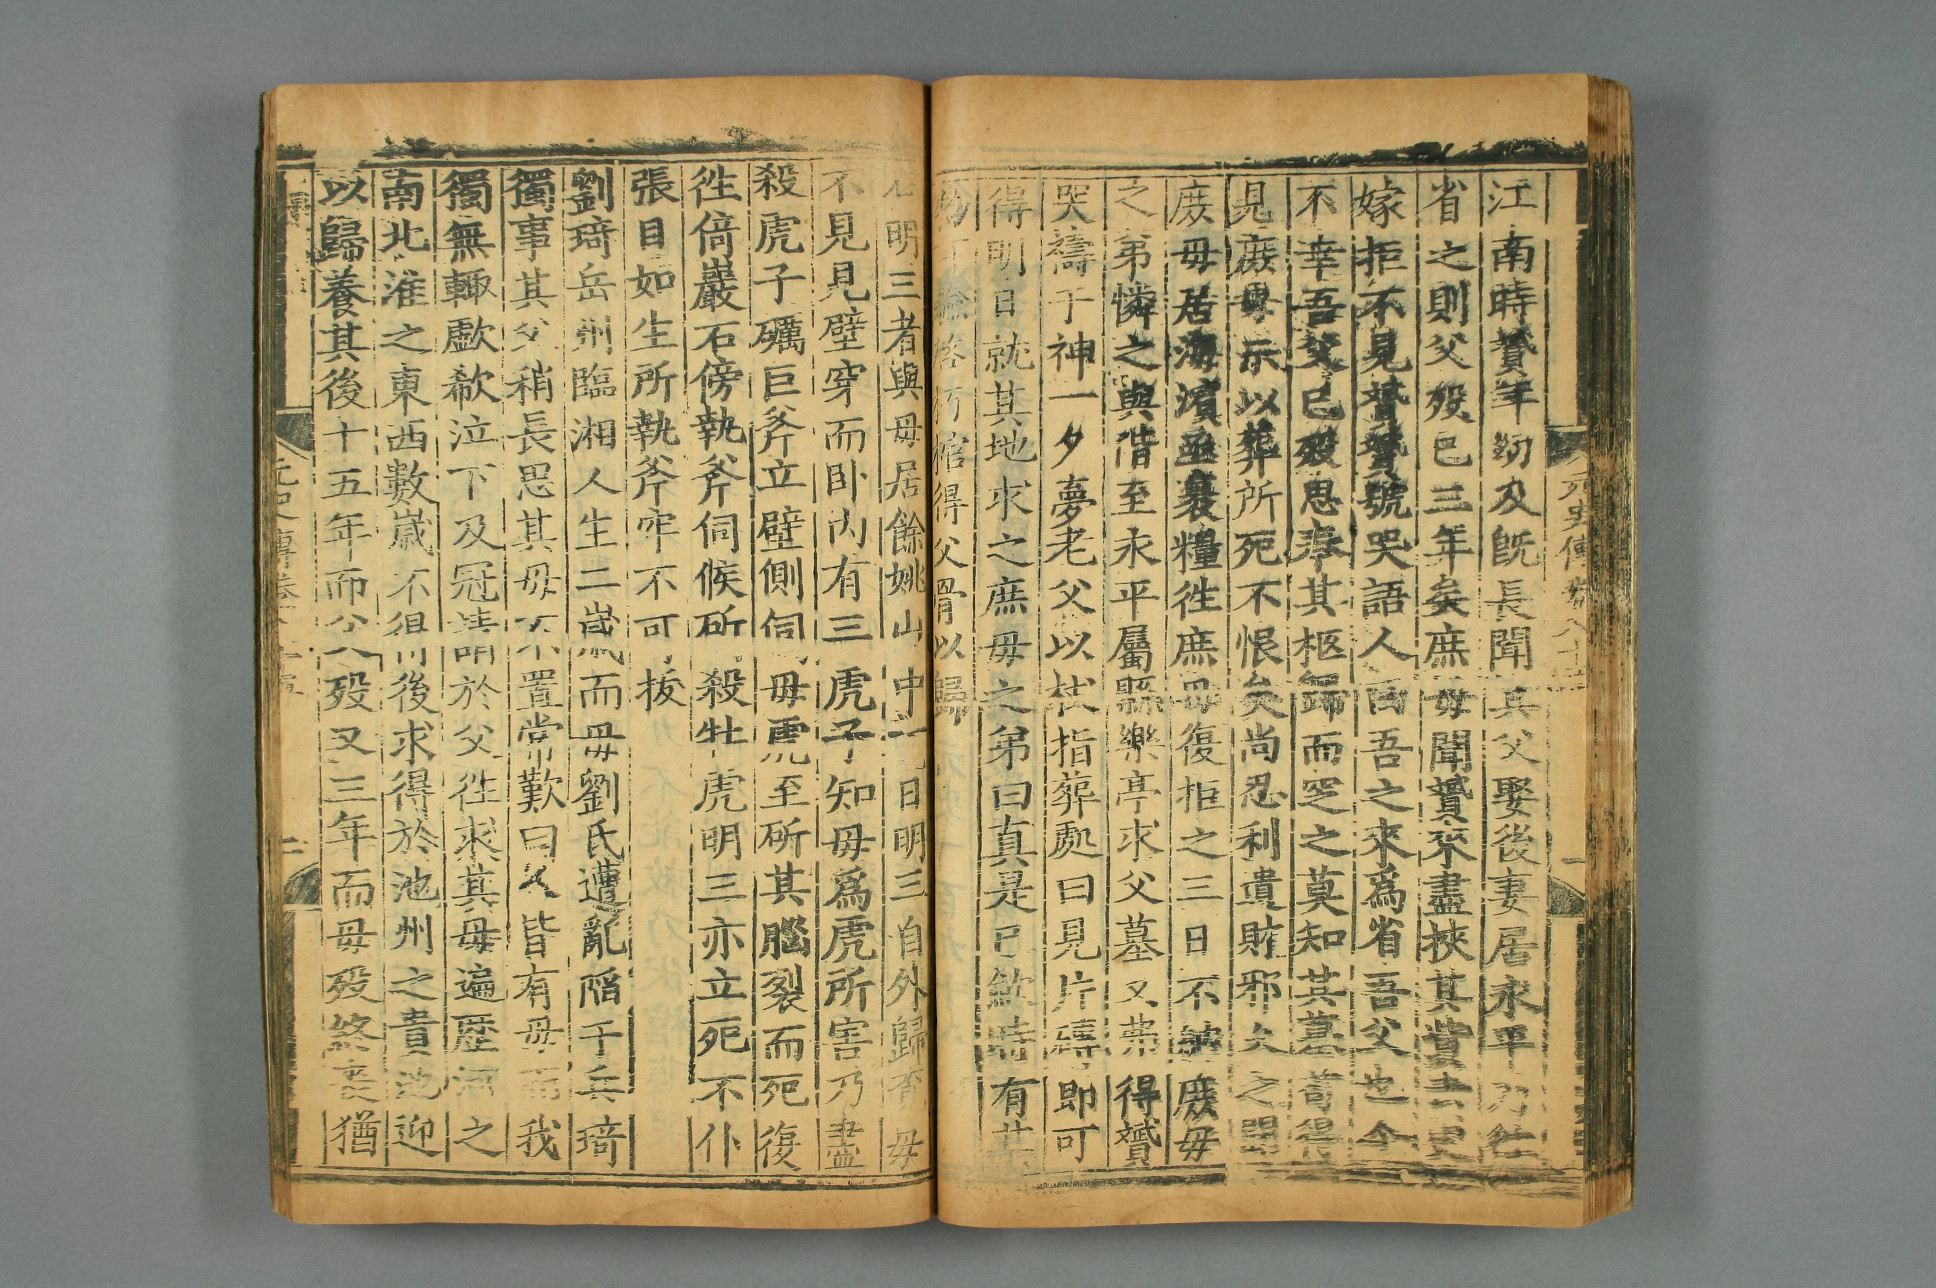 元史傳卷八十五
江南時贇年幼及旣長聞其父娶後妻居永平乃往
省之則父歿已三年矣庶母聞贇來盡挾其貲去更
嫁拒不見贇贇號哭語人曰吾之來爲省吾父也今
不幸吾父已歿思奉其柩歸而窆之莫知其墓苟得
見庶母示以葬所死不恨矣尚忍利遺財邪久之聞
庶母居海濱亟裹糧徃庶母復拒之三日不納庶母
之弟憐之與偕至永平屬縣樂亭求父墓又弗得贇
哭禱于神一夕夢老父以杖指葬處曰見片磚即可
得明日就其地求之庶母之弟曰真是已斂時有某
物可驗啓朽棺得父骨以歸
石明三者與母居餘姚山中一日明三自外歸覓母
不見見壁穿而卧內有三虎子知母爲虎所害乃盡
殺虎子礪巨斧立壁側伺母虎至斫其腦裂而死復
徃倚巖石傍執斧伺候斫殺牡虎明三亦立死不仆
張目如生所執斧牢不可拔
劉琦岳州臨湘人生二歲而母劉氏遭亂陷于兵琦
獨事其父稍長思其母不置常歎曰人皆有母而我
獨無輒歔欷泣下及冠請於父徃求其母遍歷河之
南北淮之東西數歲不得後求得於池州之貴池迎
以歸養其後十五年而父歿又三年而母歿終喪猶
元史傳卷